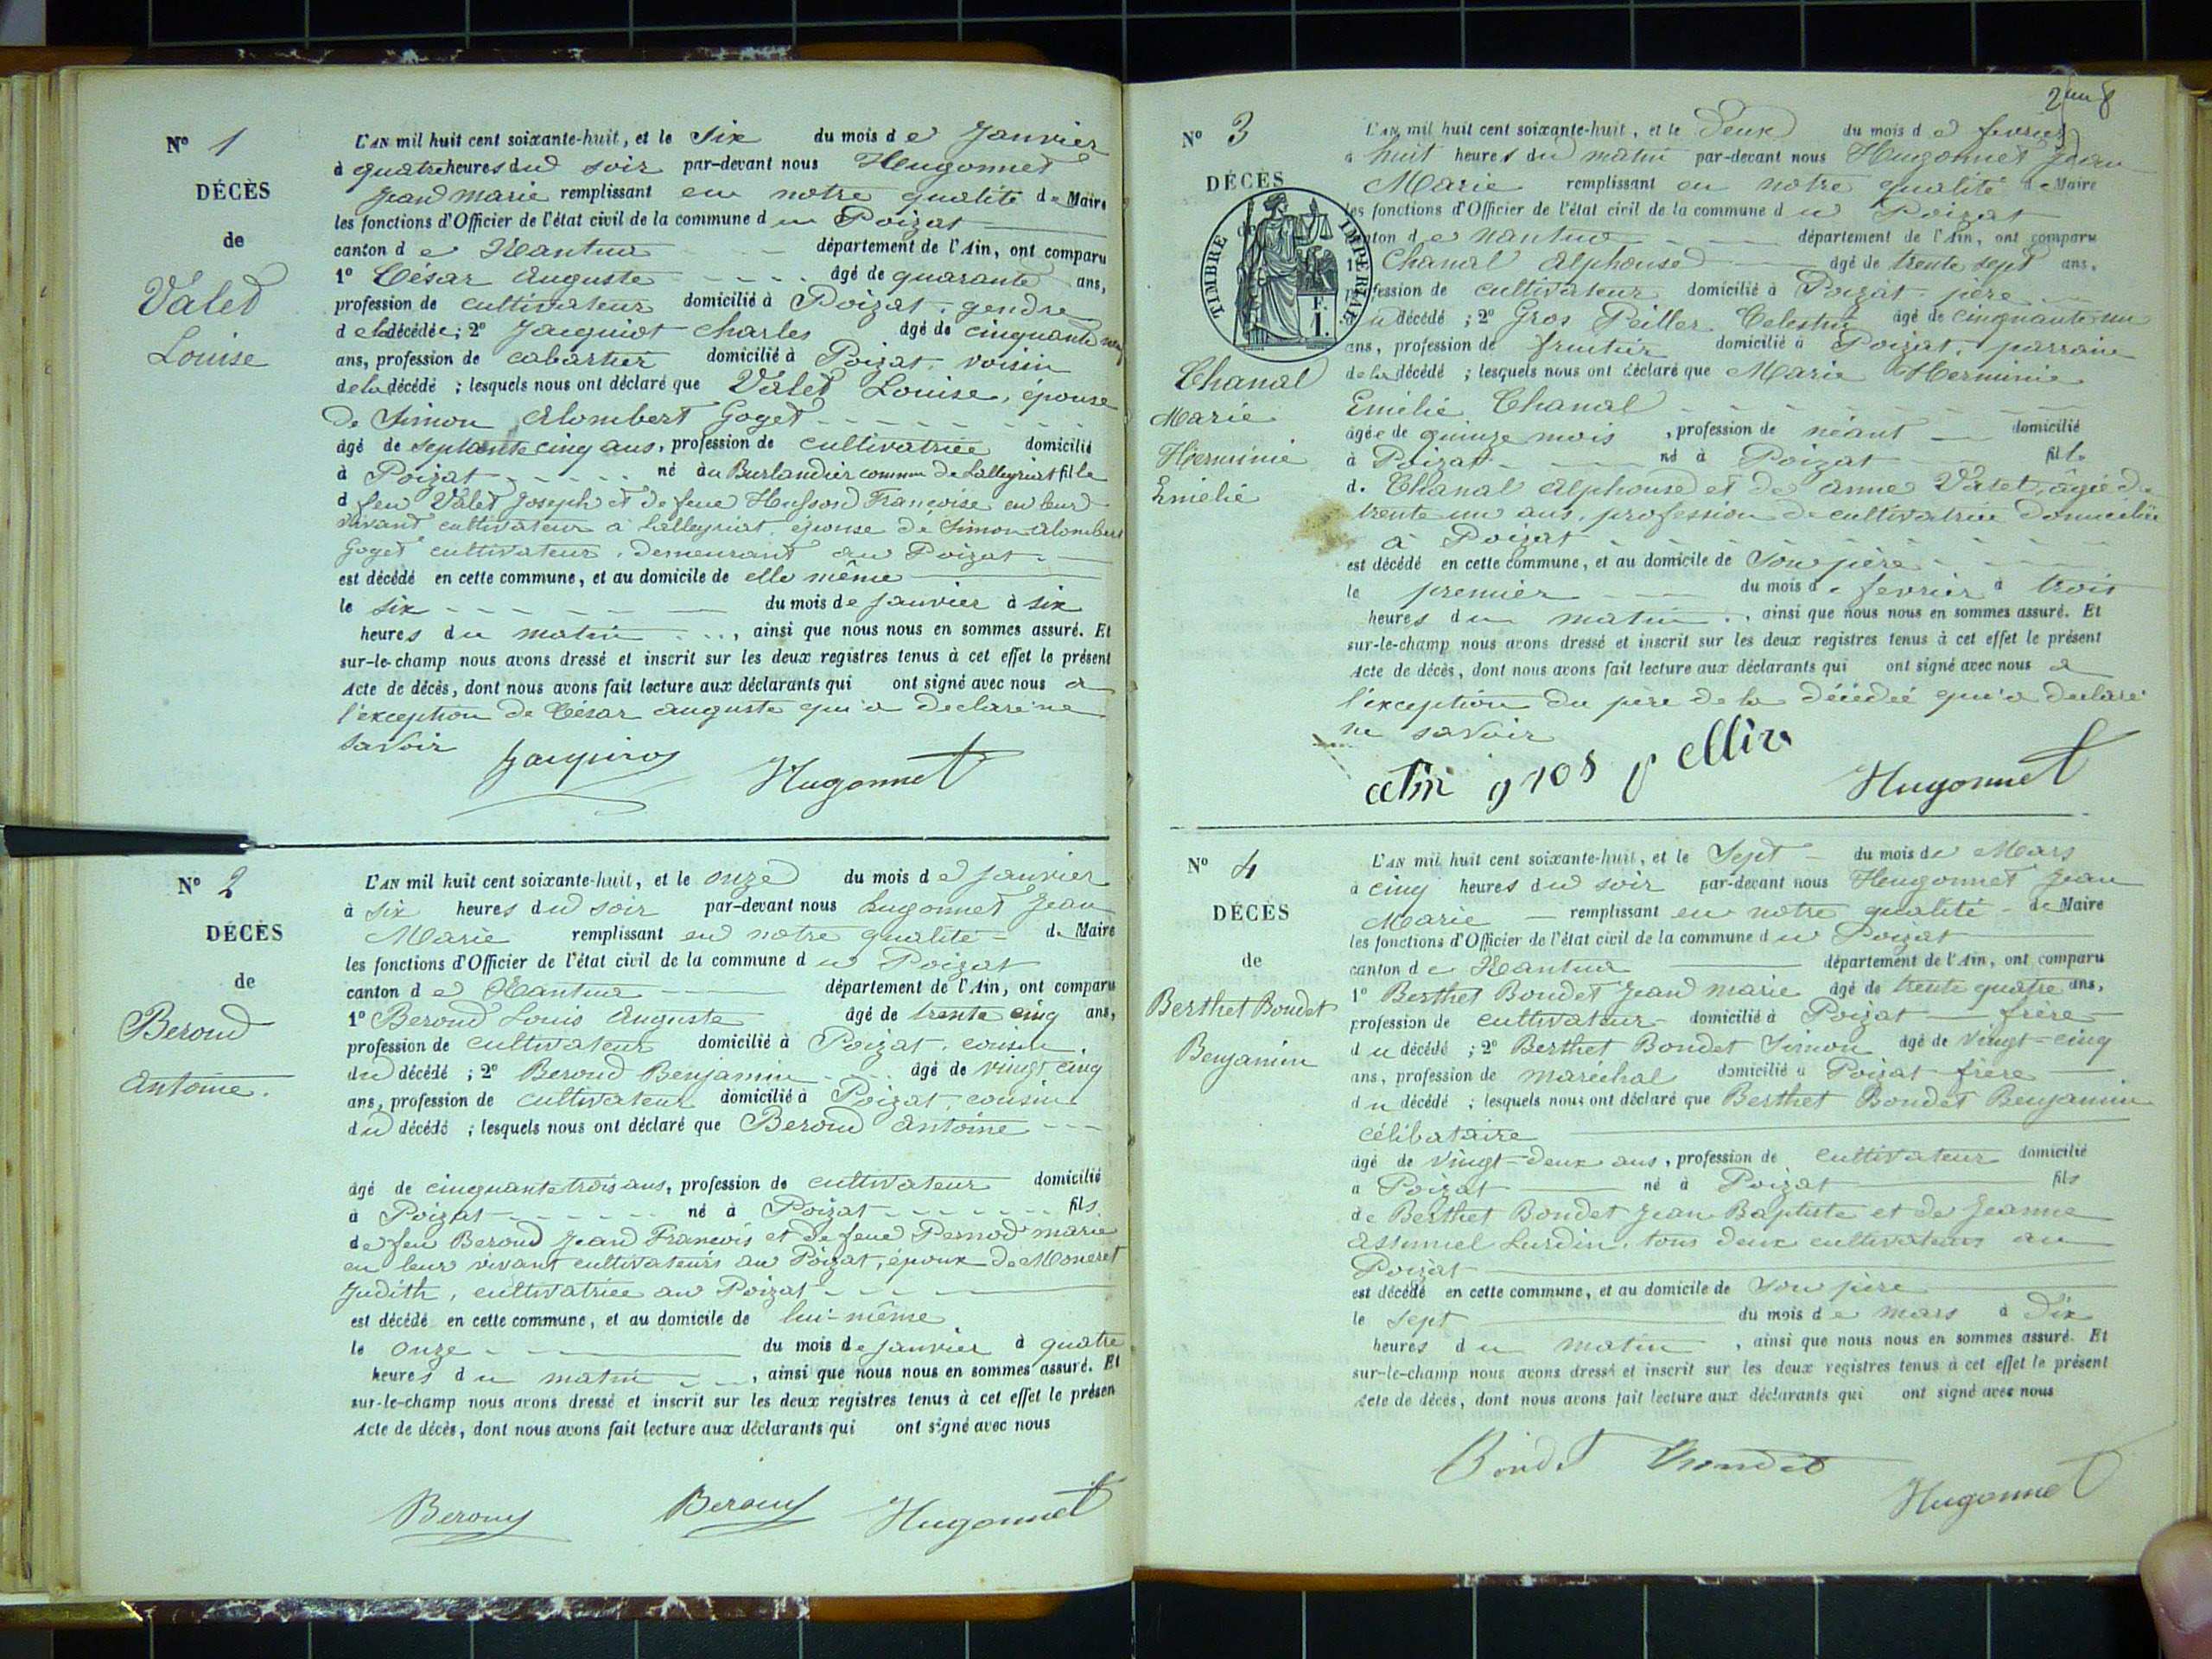 N° 1
DÉCÈS
de
Valet
Louise
L'AN mil huit cent soixante-huit, et le Six du mois de Janvier
à quatre heures du soir par-devant nous Hugonnet
Jean Marie remplissant en notre qualité de Maire
les fonctions d'Officier de l'état civil de la commune du Poizat
canton de Nantua département de l'Ain, ont comparu
1° César Auguste âgé de quarante ans,
profession de cultivateur domicilié à Poizat, gendre
de la décédée; 2° Jacquiot Charles âgé de cinquante
ans, profession de cabartier domicilié à Poizat, voisin
de la décédé ; lesquels nous ont déclaré que Valet Louise, épouse
de Simon Alombert Goget
âgé de septante cinq ans, profession de cultivatrice domicilié
à Poizat né au Burlandier commun de Lalleyriat fille
d feu Valet Joseph et de feue Husson Françoise en leur
vivant cultivateur a Lalleyriat épouse de Simon Alombert
Goget cultivateur, demeurant au Poizat
est décédé en cette commune, et au domicile de elle même
le six du mois de Janvier à six
heures du matin, ainsi que nous nous en sommes assuré. Et
sur-le-champ nous avons dressé et inscrit sur les deux registres tenus à cet effet le présent
Acte de décès, dont nous avons fait lecture aux déclarants qui ont signé avec nous a
l'exception de César auguste qui a declaré ne
savoir
Hugonnet
N° 2
DÉCÈS
de
Beroud
Antoine.
L'AN mil huit cent soixante-huit, et le onze du mois de Janvier
à six heures du soir par-devant nous hugonnet Jean
Marie remplissant en notre qualité de Maire
les fonctions d'Officier de l'état civil de la commune du Poizat
canton de Nantua département de l'Ain, ont comparu
1° Beroud Louis Auguste âgé de trente cinq ans,
profession de cultivateur domicilié à Poizat, cousin
du décédé ; 2° Beroud Benjamin âgé de vingt cinq
ans, profession de cultivateur domicilié à Poizat, cousin
du décédé ; lesquels nous ont déclaré que Beroud Antoine
âgé de cinquante trois ans, profession de cultivateur domicilié
à Poizat né à Poizat fils
de feu Beroud Jean François et de feue Pernod marie
en leur vivant cultivateurs au Poizat, époux de Moneret
Judith, cultivatrice au Poizat
est décédé en cette commune, et au domicile de lui-même
le onze du mois de Janvier à quatre
heures du matin, ainsi que nous nous en sommes assuré. Et
sur-le-champ nous avons dressé et inscrit sur les deux registres tenus à cet effet le présen
Acte de décès, dont nous avons fait lecture aux déclarants qui ont signé avec nous
Beroud Beroud Hugonnet
N° 3
DÉCÈS
de
TIMBRE IMPÉRIAL
F.
1.
Chanal
Marie
Herminie
Emélie
L'AN mil huit cent soixante-huit, et le Deux du mois de fevrier
à huit heures du matin par-devant nous Hugonnet Jean
Marie remplissant en notre qualité de Maire
les fonctions d'Officier de l'état civil de la commune du Poizat
canton de Nantua département de l'Ain, ont comparu
1° Chanal Alphonse âgé de trente sept ans,
profession de cultivateur domicilié à Poizat, père
du décédé ; 2° Gros Peiller Celestin âgé de cinquante un
ans, profession de fruitier domicilié à Poizat, parrain
de la décédé ; lesquels nous ont déclaré que Marie Herminie
Emélie Chanal
âgée de quinze mois, profession de néant domicilié
à Poizat né à Poizat fille
d. Chanal Alphonse et de Anne Valet, âgée de
trente un ans, profession de cultivatrice domiciliée
à Poizat
est décédé en cette commune, et au domicile de Son père
le premier du mois de fevrier à trois
heures du matin, ainsi que nous nous en sommes assuré. Et
sur-le-champ nous avons dressé et inscrit sur les deux registres tenus à cet effet le présent
Acte de décès, dont nous avons fait lecture aux déclarants qui ont signé avec nous a
l'exception du père de la décédée qui a declaré
ne savoir
Hugonnet
N° 4
DÉCÈS
de
Berthet Bondet
Benjamin
L'AN mil huit cent soixante-huit, et le Sept du mois de Mars
à cinq heures du soir par-devant nous Hugonnet Jean
Marie remplissant en notre qualité de Maire
les fonctions d'Officier de l'état civil de la commune du Poizat
canton de Nantua département de l'Ain, ont comparu
1° Berthet Bondet Jean marie âgé de trente quatre ans,
profession de cultivateur domicilié à Poizat frère
du décédé ; 2° Berthet Bondet Simon âgé de vingt-cinq
ans, profession de maréchal domicilié à Poizat frère
du décédé ; lesquels nous ont déclaré que Berthet Bondet Benjamin
célibataire
âgé de vingt-deux ans, profession de cultivateur domicilié
à Poizat né à Poizat fils
de Berthet Bondet Jean Baptiste et de Jeanne
tous deux cultivateurs au
Poizat
est décédé en cette commune, et au domicile de Son père
le Sept du mois de mars à dix
heures du matin, ainsi que nous nous en sommes assuré. Et
sur-le-champ nous avons dressé et inscrit sur les deux registres tenus à cet effet le présent
Acte de décès, dont nous avons fait lecture aux déclarants qui ont signé avec nous
Bondet Bondet
Hugonnet